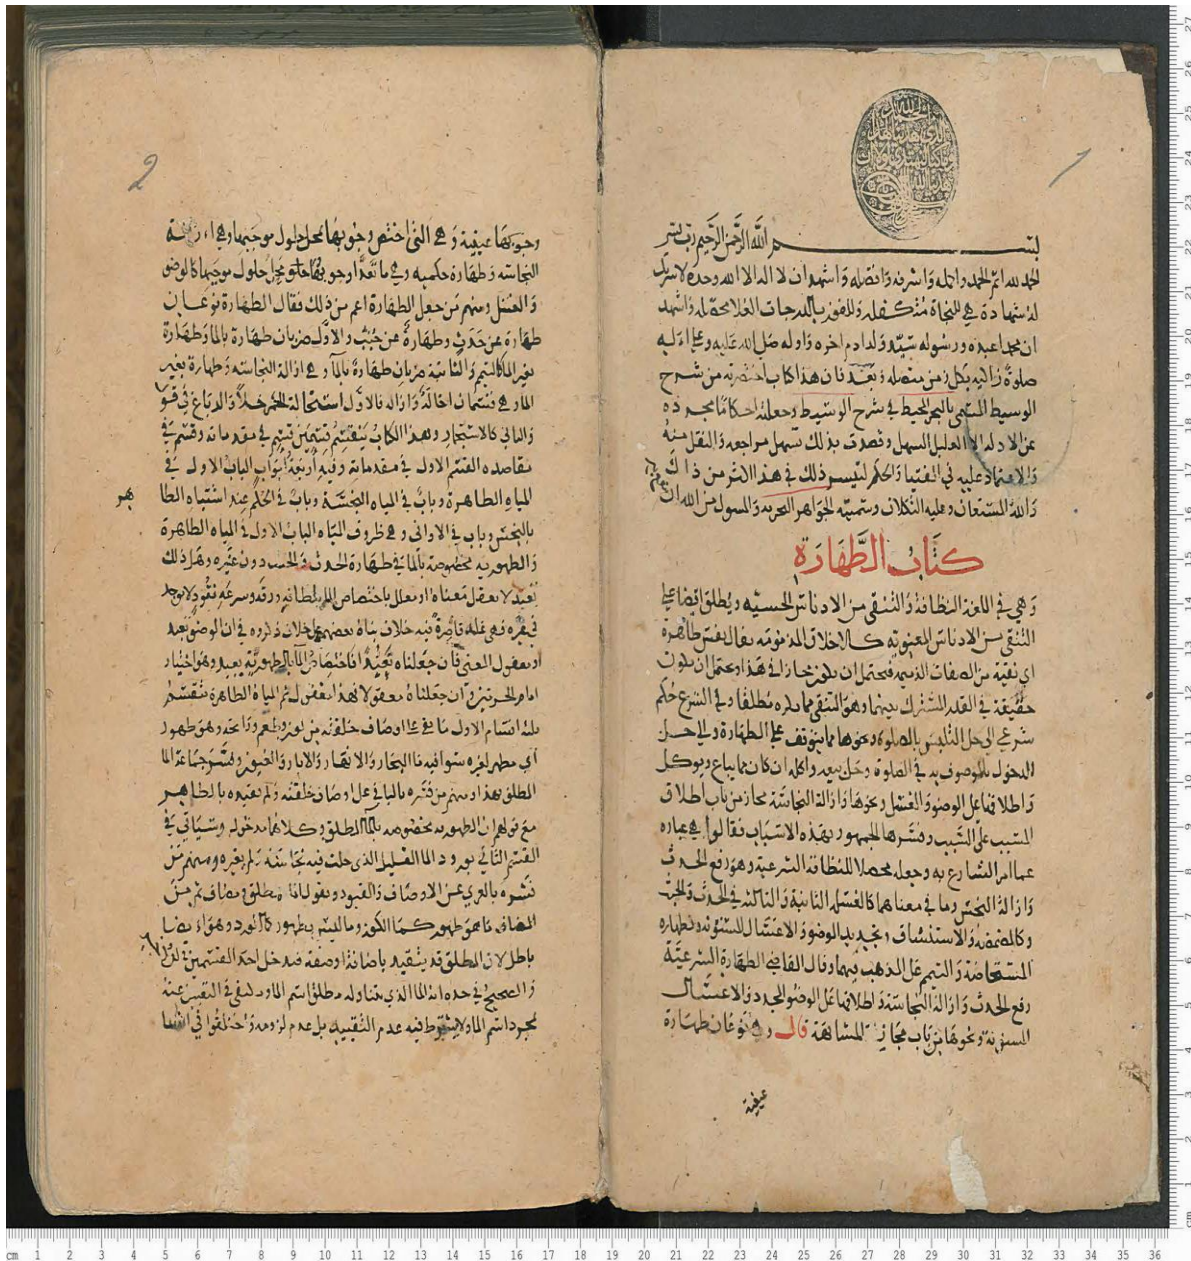 بسم الله الرحمن الرحيم رب يسر
الحمد لله اتم الحمد واكمله واشرفه وافضله واشهد ان لا اله الا الله وحده لا شريك
له شهادة هي للنجاة متكفله وللفوز بالدرجات العلا محصله واشهد
ان محمدا عبده ورسوله سيد ولد ادم اخره واوله صلى الله عليه وعلى اله
صلوة زاكيه بكل زمن متصله وبعد فان هذا كتاب اختصرته من شرح
الوسيط المسمى بالبحر المحيط في شرح الوسيط وجعلته احكاما مجرده
عن الادله الا القليل السهل وقصدت بذلك تسهيل مراجعه والنقل منه
والاعتماد عليه في الفتيا والحكم لتيسر ذلك في هذا اكثر من ذاك
والله المستعان وعليه التكلان وسميته الجواهر البحريه والمسول من الله ان
كتاب الطهارة
وهي في اللغة النظافة والتنقي من الادناس الحسيه ويطلق ايضا على
التنقي من الادناس المعنويه كالاخلاق المذمومه يقال نفس طاهرة
اي نقية من الصفات الذميمه فيحتمل ان يكون مجازا في هذا ويحتمل ان يكون
حقيقة في القدر المشترك بينهما وهو التنقي مما يكره مطلقا وفي الشرع حكم
شرعي الى حل التلبس بالصلوة ونحوها مما يتوقف على الطهارة والى حل
الدخول بالموصوف به في الصلوة وحل بيعه واكله ان كان مما يباع ويوكل
واطلاقها على الوضو والغسل ونحوها وازالة النجاسة مجاز من باب اطلاق
المسبب على السبب وفسرها الجمهور بهذه الاسباب فقالوا هي عباره
عما امر الشارع به وجعله محصلا للنظافة الشرعية وهو رفع الحدث
وازالة النجس وما في معناهما كالغسله الثانية والثالثه في الحدث والخبث
وكالمضمضه والاستنشاق وتجديد الوضو والاغتسال المسنونه وطهاره
المستحاضة والتيمم على المذهب فيهما وقال القاضي الطهارة الشرعية
رفع الحدث وازالة النجاسة واطلاقها على الوضو المجدد والاغتسال
المسنونة ونحوها من باب مجاز المشابهة قال وهي نوعان طهارة
عينية
وجوبها عينية وهي التي اختص وجوبها بمحل حلول موجبها وهي ازالة
النجاسه وطهارة حكميه وهي ما تعدا وجوبها محل حلول موجبها كالوضو
والغسل ومنهم من جعل الطهارة اعم من ذلك فقال الطهارة نوعان
طهارة عن حدث وطهارة عن خبث والاول ضربان طهارة بالما وطهارة
بغير الما كالتيمم والثانية ضربان طهارة بالما وهي ازالة النجاسه وطهارة بغير
الما وهي قسمان احالة وازاله فالاول استحالة الخمر خلا والدباغ في قول
والثاني كالاستجمار وهذا الكتاب ينقسم قسمين قسم في مقدماته وقسم في
مقاصده القسم الاول في مقدماته وفيه اربعة ابواب الباب الاول في
المياه الطاهرة وباب في المياه النجسة وباب في الحكم عند اشتباه الطا
هر
بالنجس وباب في الاواني وهي ظروف المياه الباب الاول في المياه الطاهرة
والطهوريه مخصوصة بالما في طهارة الحدث والخبث دون غيره وهل ذلك
تعبد لا يعقل معناه او معلل باختصاص الما بلطافته ورقه وسرعة نفوذ ولا يوجد
في غيره فهي علة قاصرة فيه خلاف بناه بعضهم على خلاف ذكروه في ان الوضو تعبد
او معقول المعنى فان جعلناه تعبدا فاختصاص الما بالطهورية تعبد وهو اختيار
امام الحرمين وان جعلناه معقولا فهذا معقول ثم المياه الطاهرة تنقسم
ثلثة اقسام الاول ما بقي على اوصاف خلقته من لون وطعم ورائحه وهو طهور
اي مطهر لغيره سوا فيه ما البحار والانهار والابار والعيون وفسر جماعة الما
المطلق بهذا ومنهم من فسره بالباقي على اوصاف خلقته ولم يقيده بالطاهر
مع قولهم ان الطهوريه مخصوصه بالما المطلق وكلاهما مدخول وسياتي في
القسم الثاني
نفسره بالعري عن الاوصاف والقيود ويقول الما مطلق ومضاف ثم من
المضاف ما هو طهور كما الكوز وما ليس بطهور كما الورد وهو ايضا
باطل لان المطلق قد يتقيد باضافة او صفة فيدخل احد القسمين في الاخر
والصحيح في حده انه الما الذي يتناوله مطلق اسم الما ويكفي في التعبير عنه
مجرد اسم الما ولا يشترط فيه عدم التقييد بل عدم لزومه واختلفوا في اشيا
1
2